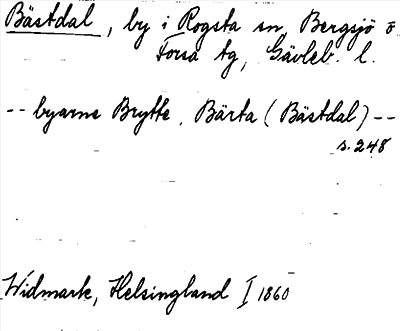 Bästdal, by i Rogsta sn, Bergsjö o
Forsa tg, Gävleb. l.
-- byarne Brytte, Bärta (Bästdal) --
s. 248
Widmark, Helsingland I 1860